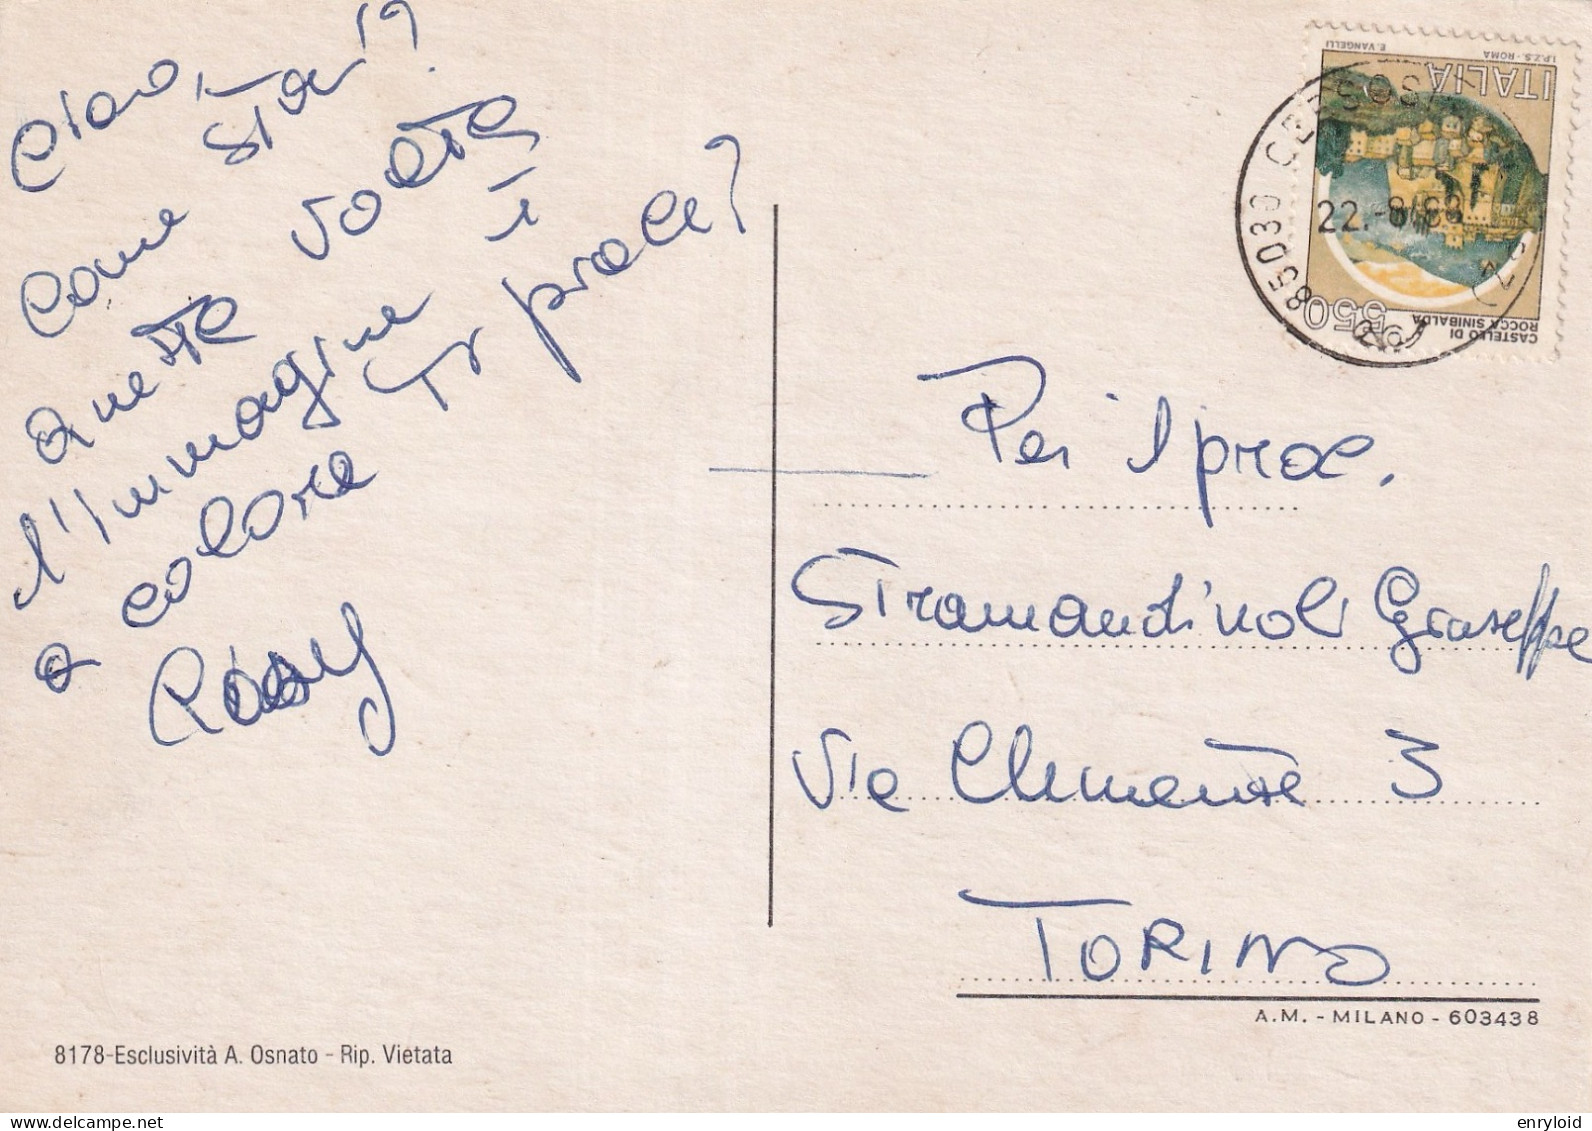 Ciao,
come stai?
questa volta
l'immagine è
a colore
Ti piace?
Rosy
I.P.Z.S. - ROMA E. VANGELLI
ITALIA
CASTELLO DI
ROCCA SINIBALDA
550
85030 CERSOSIMO (PZ)
22.-8.88
Per il prof.
Stramandinoli Giuseppe
Via Clemente 3
TORINO
A.M. - MILANO - 603438
8178-Esclusività A. Osnato - Rip. Vietata
enryloid